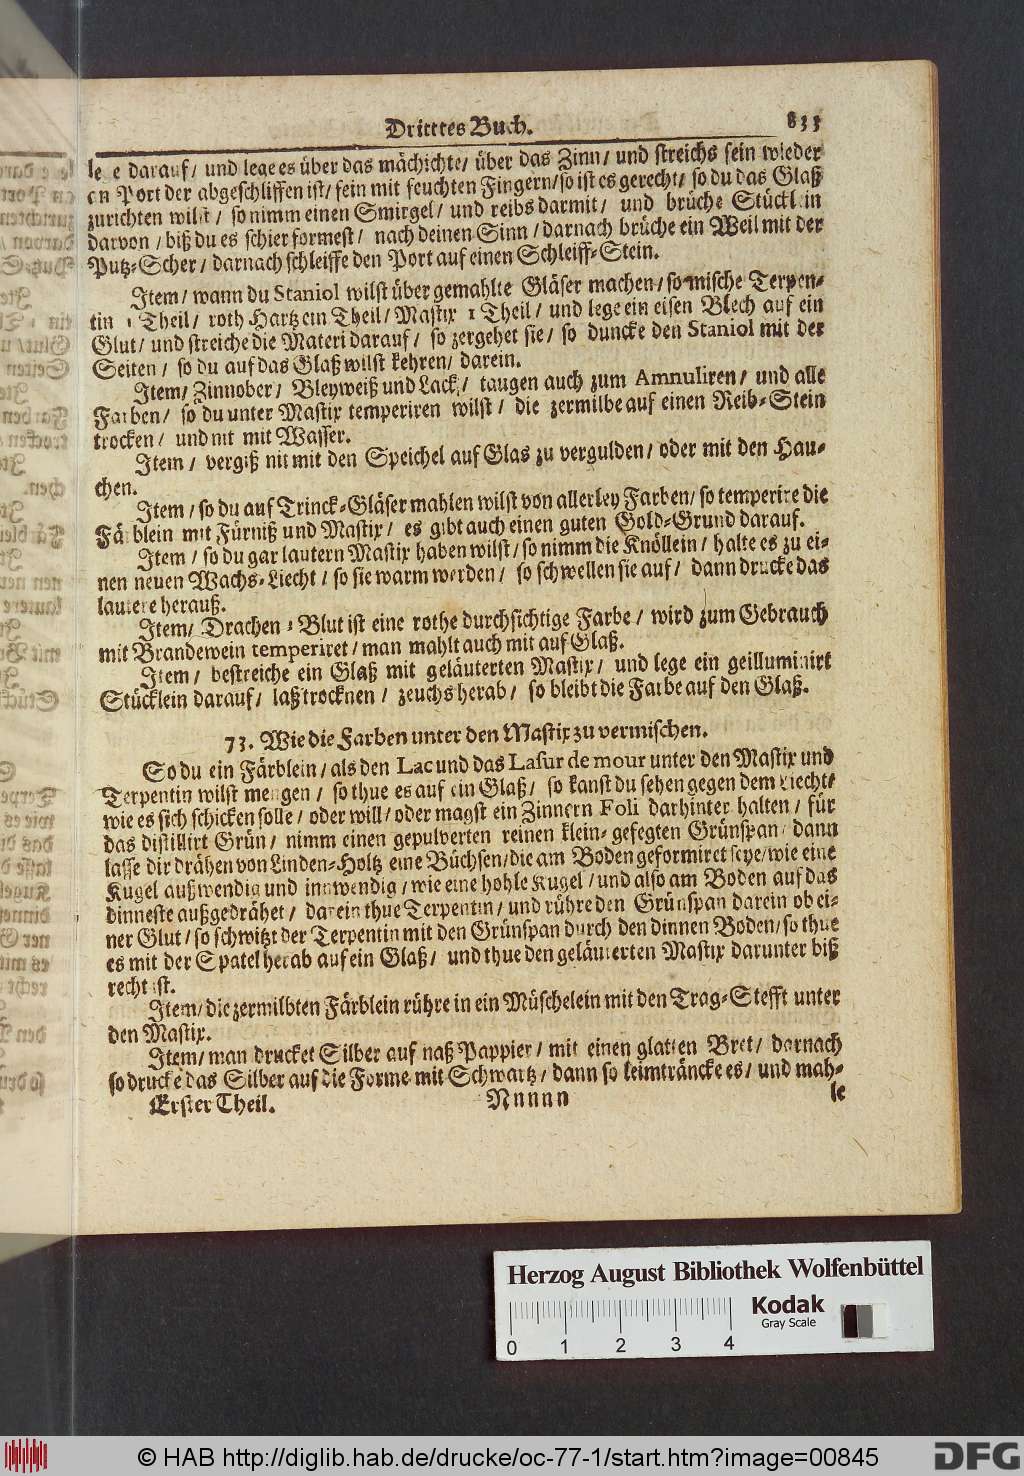 Dritttes Buch. 833
le e darauf/ und lege es über das mächichte/ über das Zinn/ und streichs fein wieder
en Port der abgeschliffen ist/ fein mit feuchten Fingern/ so ist es gerecht/ so du das Glaß
zurichten wilst/ so nimm einen Smirgel/ und reibs darmit/ und brüche Stücklein
darvon/ biß du es schier formest/ nach deinen Sinn/ darnach brüche ein Weil mit der
Putz-Scher/ darnach schleiffe den Port auf einen Schleiff-Stein.
Item/ wann du Staniol wilst über gemahlte Gläser machen/ so mische Terpen-
tin 1 Theil/ roth Hartz ein Theil/ Mastix 1 Theil/ und lege ein eisen Blech auf ein
Glut/ und streiche die Materi darauf/ so zergehet sie/ so duncke den Staniol mit der
Seiten/ so du auf das Glaß wilst kehren/ darein.
Item/ Zinnober/ Bleyweiß und Lack/ taugen auch zum Amnuliren/ und alle
Farben/ so du unter Mastix temperiren wilst/ die zermilbe auf einen Reib-Stein
trocken/ und nit mit Wasser.
Item/ vergiß nit mit den Speichel auf Glas zu vergulden/ oder mit den Hau-
chen.
Item/ so du auf Trinck-Gläser mahlen wilst von allerley Farben/ so temperire die
Färblein mit Fürniß und Mastix/ es gibt auch einen guten Gold-Grund darauf.
Item/ so du gar lautern Mastix haben wilst/ so nimm die Knöllein/ halte es zu ei-
nen neuen Wachs-Liecht/ so sie warm werden/ so schwellen sie auf/ dann drucke das
lautere herauß.
Item/ Drachen-Blut ist eine rothe durchsichtige Farbe/ wird zum Gebrauch
mit Brandewein temperiret/ man mahlt auch mit auf Glaß.
Item/ bestreiche ein Glaß mit geläuterten Mastix/ und lege ein geilluminirt
Stücklein darauf/ laß trocknen/ zeuchs herab/ so bleibt die Farbe auf den Glaß.
73. Wie die Farben unter den Mastix zu vermischen.
So du ein Färblein/ als den Lac und das Lasur de mour unter den Mastix und
Terpentin wilst mengen/ so thue es auf ein Glaß/ so kanst du sehen gegen dem Liecht/
wie es sich schicken solle/ oder will/ oder magst ein Zinnern Foli darhinter halten/ für
das distillirt Grün/ nimm einen gepulverten reinen klein-gefegten Grünspan/ dann
lasse dir drähen von Linden-Holtz eine Büchsen/ die am Boden geformiret seye/ wie eine
Kugel außwendig und innwendig/ wie eine hohle Kugel/ und also am Boden auf das
dinneste außgedrähet/ darein thue Terpentin/ und rühre den Grünspan darein ob ei-
ner Glut/ so schwitzt der Terpentin mit den Grünspan durch den dinnen Boden/ so thue
es mit der Spatel herab auf ein Glaß/ und thue den geläuterten Mastix darunter biß
recht ist.
Item/ die zermilbten Färblein rühre in ein Müschelein mit den Trag-Stefft unter
den Mastix.
Item/ man drucket Silber auf naß Pappier/ mit einen glatten Bret/ darnach
so drucke das Silber auf die Forme mit Schwartz/ dann so leimträncke es/ und mah-
Erster Theil. Nnnnn le
Herzog August Bibliothek Wolfenbüttel
Kodak
Gray Scale
0 1 2 3 4
© HAB http://diglib.hab.de/drucke/oc-77-1/start.htm?image=00845
DFG